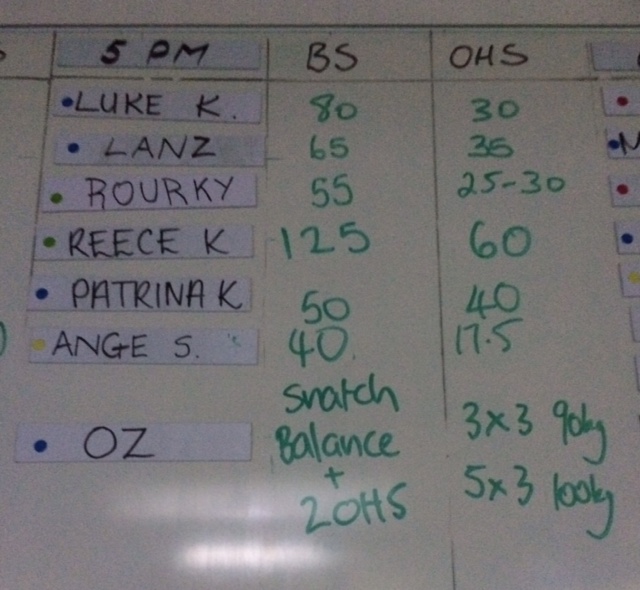 5 PM BS OHS
LUKE K. 80 30
LANZ 65 35
ROURKY 55 25-30
REECE K 125 60
PATRINA K 50 40
ANGE S. 40. 17.5
OZ
Snatch
Balance
+
2OHS
3x3 90kg
5x3 100kg